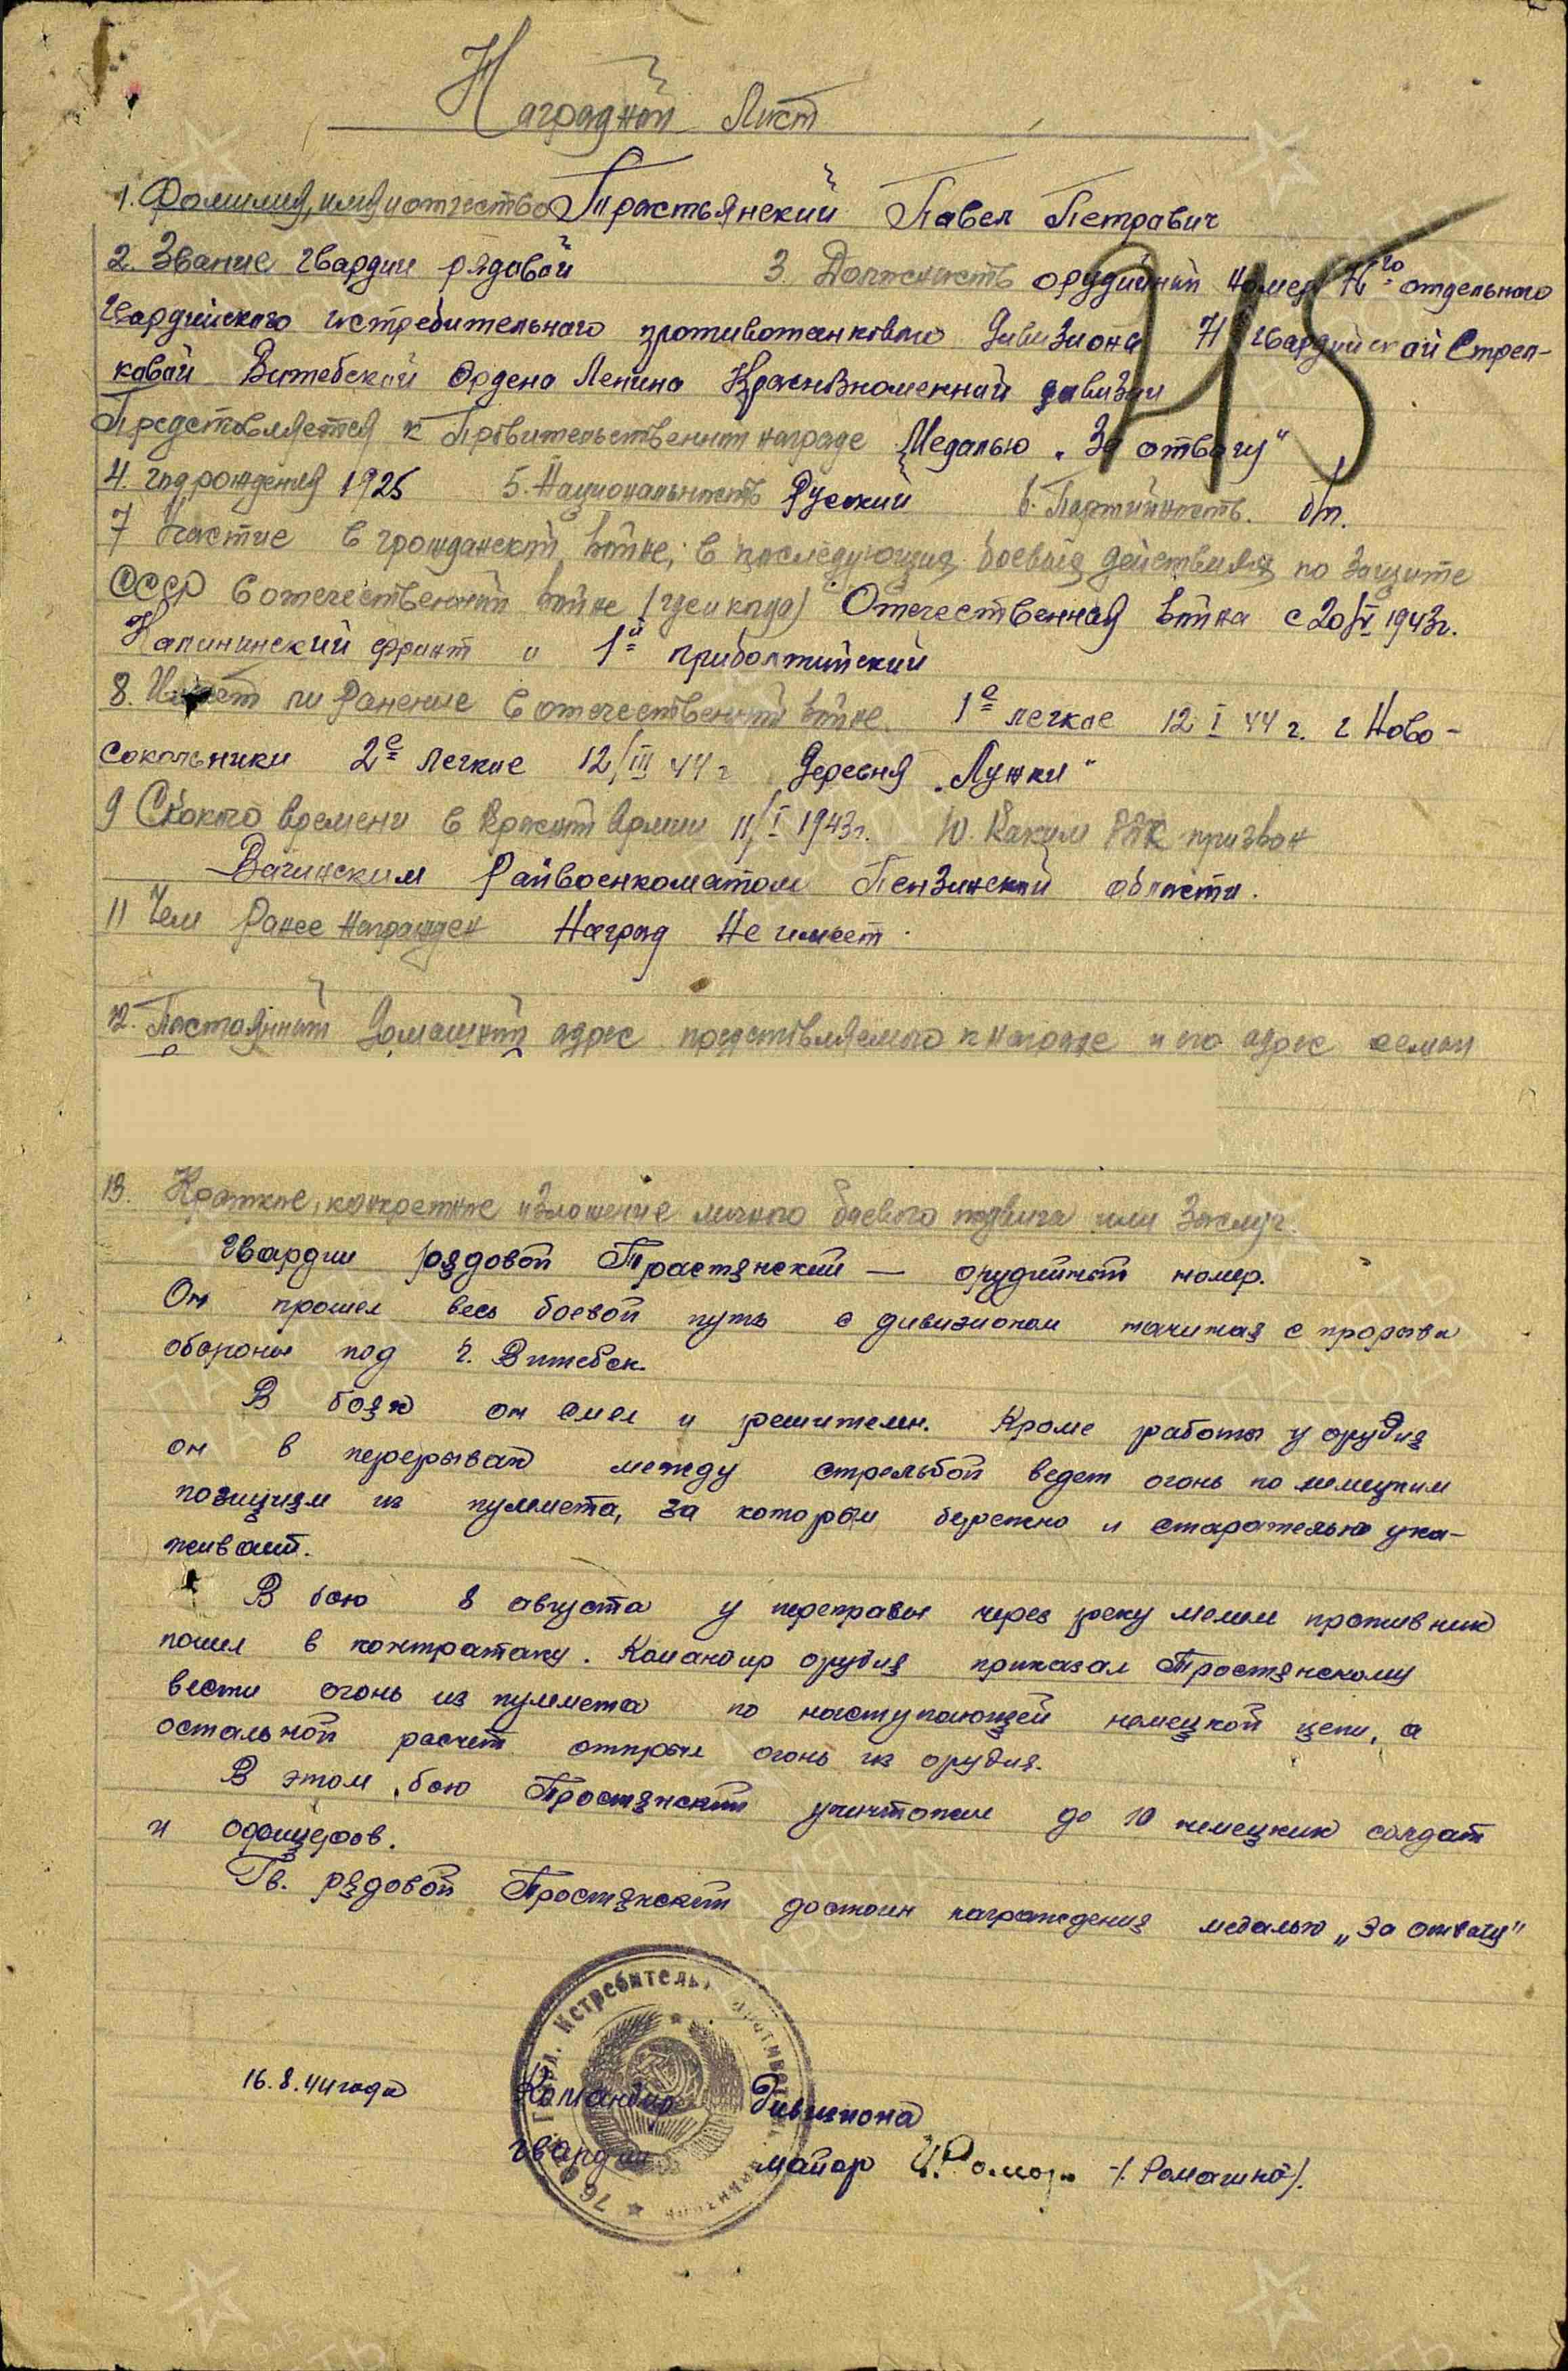 Наградной Лист
1. Фамилия, имя и отчество Тростьянский Павел Петравич
2. Звание гвардии рядовой 3. Должность орудийный номер 76го отдельного
Гвардейского истребительного противотанкового дивизиона 71 гвардейской Стрел-
кавай Витебской Ордена Ленина Краснознаменной дивизии
Представляется к Правительственной награде Медалью „За отвагу"
4. год рождения 1925 5. Национальность Руский 6. Партийность. б/п.
7 Участие в гражданской войне, в последующих боевых действиях по защите
СССР в отечественной войне (где и когда) Отечественная война с 20/V 1943г.
Калининский фронт и 1й прибалтийский
8. Имеет ли Ранение в отечественной войне. 1е легкое 12 I 44 г. г Ново-
сокольники 2е легкие 12/III 44 г деревня „Лужки"
9 Скокого времени в Красной Армии 11/I 1943г. 10. Каким РВК призван
Райвоенкоматом Пензинской области.
11 Чем Ранее награжден Наград Не имеет.
12. Постоянный Домашний адрес представляемого к награде и его адрес семьи
13. Краткое, конкретное изложение личного боевого подвига или Заслуг.
Гвардии рядовой Тростянский — орудийный номер.
Он прошел весь боевой путь с дивизионом начиная с прорыва
обороны под г. Витебск.
В боях он смел и решителен. Кроме работы у орудия
он в перерывах между стрельбой ведет огонь по немецким
позициям из пулемета, за которым бережно и старательно уха-
живает.
В бою 8 августа у переправы через реку Мемеле противник
пошел в контратаку. Командир орудия приказал Тростянскому
вести огонь из пулемета по наступающей немецкой цепи, а
остальной расчет открыл огонь из орудия.
В этом бою Тростянский уничтожил до 10 немецких солдат
и офицеров.
Гв. рядовой Тростянский достоин награждения медалью „За отвагу"
16.8.44 года Командир Дивизиона
гвардии майор /Ромашко/.
76 Гвард. Истребительн. Противотанк.